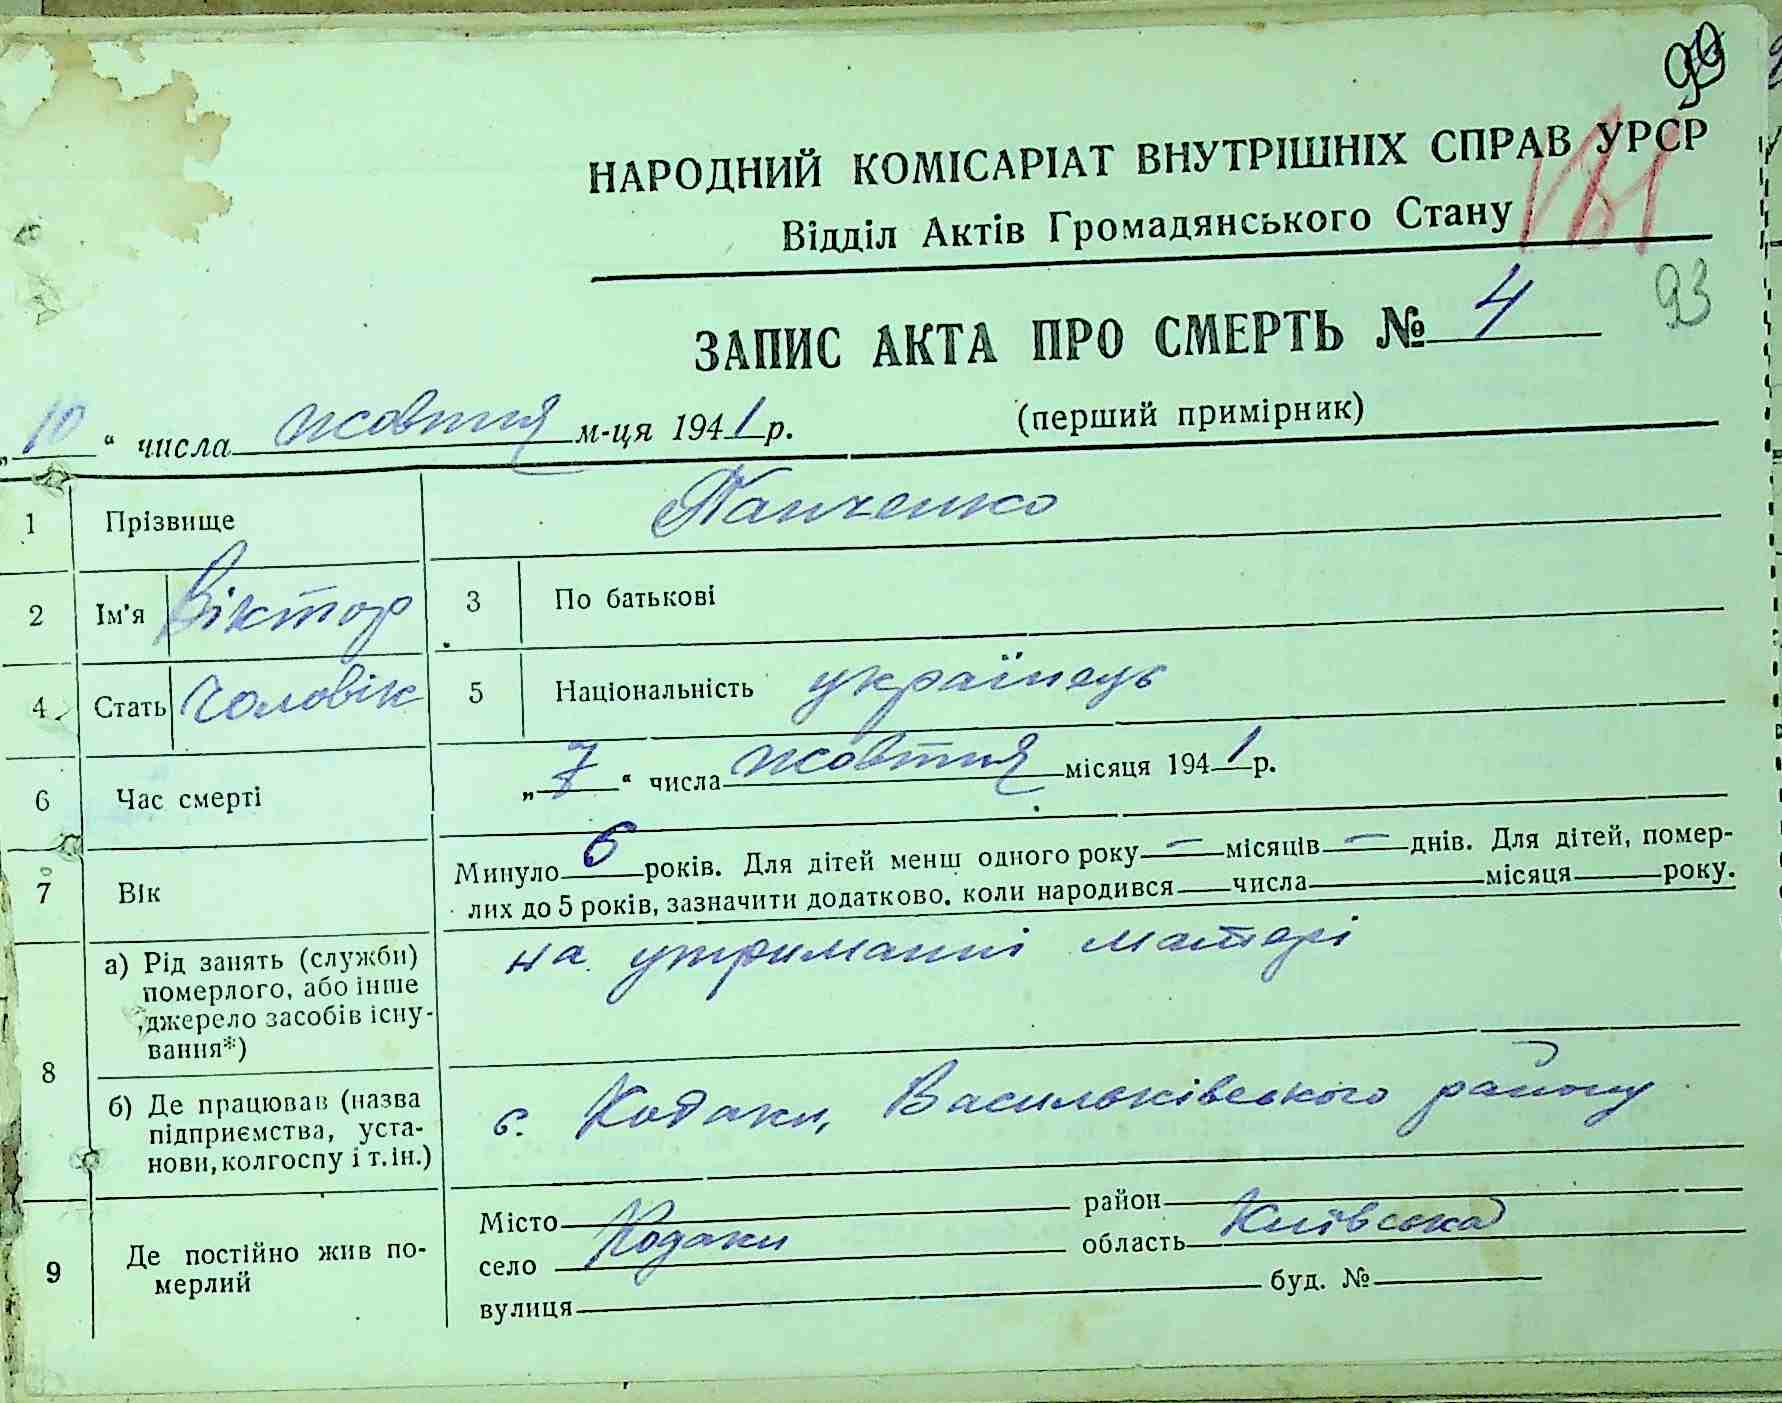 99
НАРОДНИЙ КОМІСАРІАТ ВНУТРІШНІХ СПРАВ УРСР
Відділ Актів Громадянського Стану
93
ЗАПИС АКТА ПРО СМЕРТЬ № 4
„10“ числа жовтня м-ця 1941 р. (перший примірник)
1 Прізвище Панченко
2 Ім'я Віктор 3 По батькові
4 Стать чоловік 5 Національність українець
6 Час смерті „7“ числа жовтня місяця 1941 р.
7 Вік Минуло 6 років. Для дітей менш одного року — місяців — днів. Для дітей, помер-
лих до 5 років, зазначити додатково, коли народився числа місяця року.
8 а) Рід занять (служби) померлого, або інше джерело засобів існу-вання*) на утриманні матері
б) Де працював (назва підприємства, уста-нови, колгоспу і т.ін.) с. Кодаки, Васильківського району
9 Де постійно жив по-мерлий Місто район
село Кодаки область Київська
вулиця буд. №